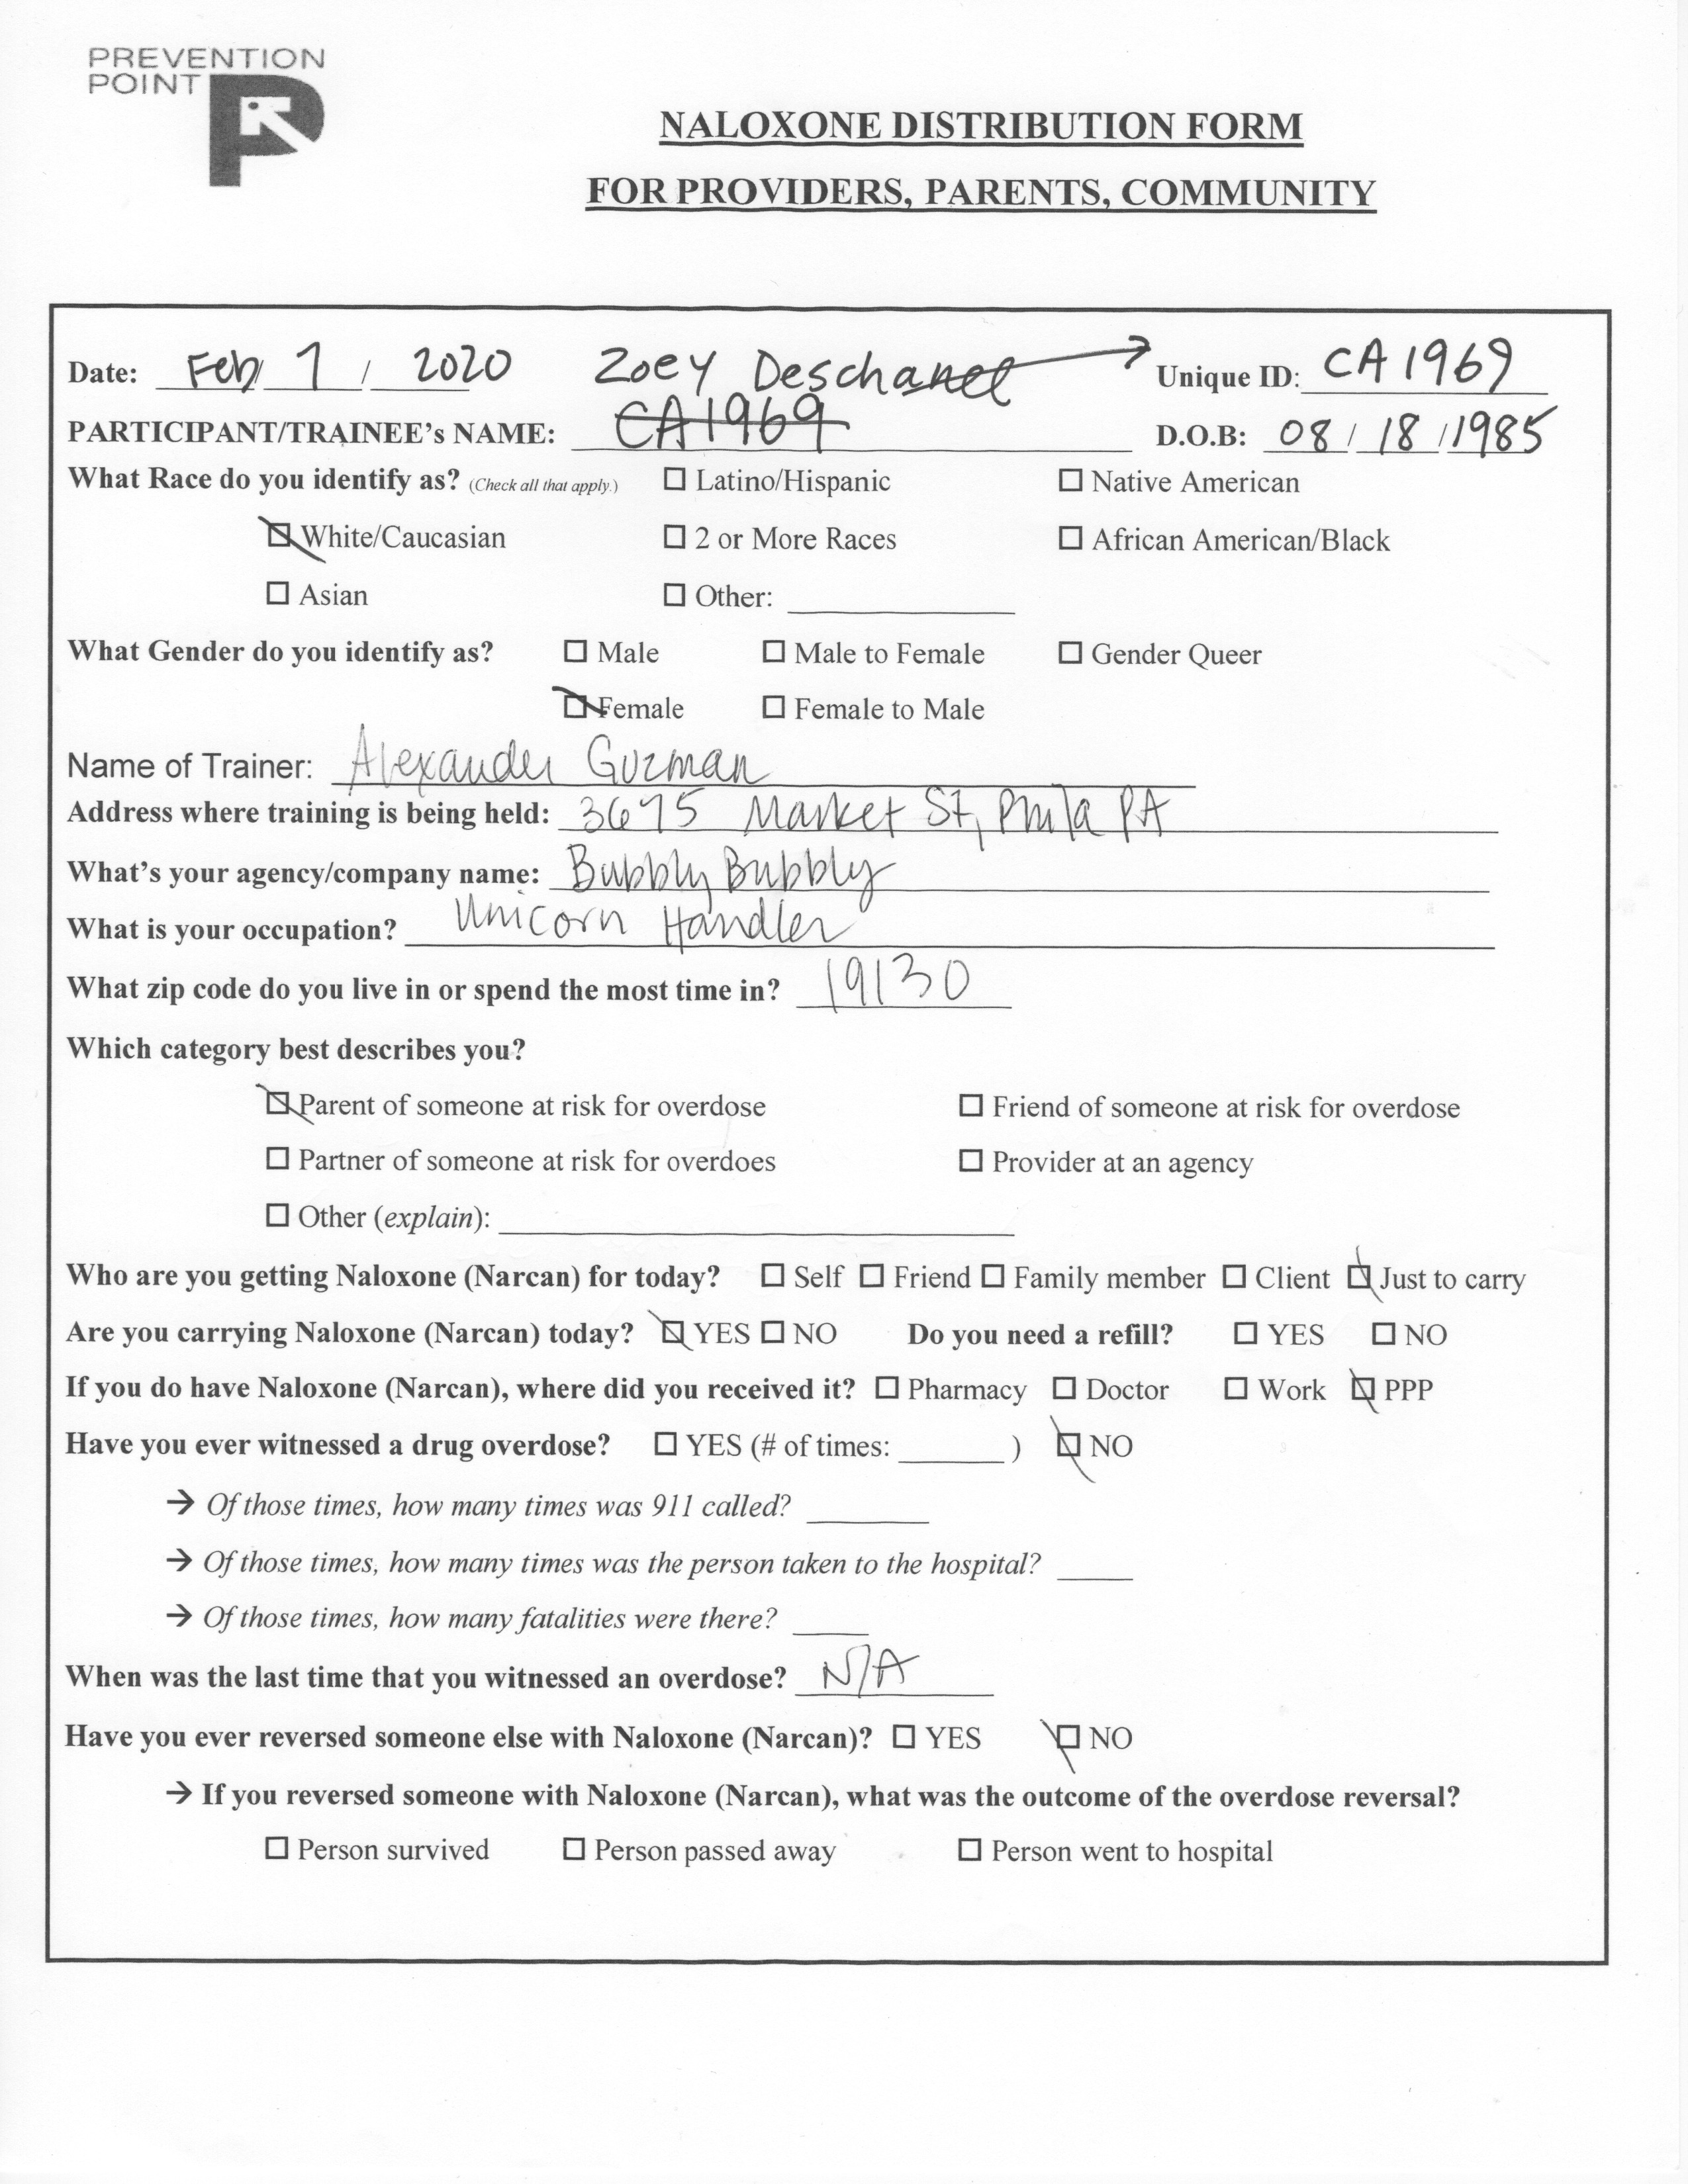 PREVENTION
POINT
NALOXONE DISTRIBUTION FORM
FOR PROVIDERS, PARENTS, COMMUNITY
Date: Feb / 7 / 2020 Zoey Deschanel Unique ID: CA1969
PARTICIPANT/TRAINEE's NAME: CA1969 D.O.B: 08 / 18 / 1985
What Race do you identify as? (Check all that apply.) ☐ Latino/Hispanic ☐ Native American
☒ White/Caucasian ☐ 2 or More Races ☐ African American/Black
☐ Asian ☐ Other:
What Gender do you identify as? ☐ Male ☐ Male to Female ☐ Gender Queer
☒ Female ☐ Female to Male
Name of Trainer: Alexander Guzman
Address where training is being held: 3675 Market St, Phila PA
What's your agency/company name: Bubbly Bubbly
What is your occupation? Unicorn Handler
What zip code do you live in or spend the most time in? 19130
Which category best describes you?
☒ Parent of someone at risk for overdose ☐ Friend of someone at risk for overdose
☐ Partner of someone at risk for overdoes ☐ Provider at an agency
☐ Other (explain):
Who are you getting Naloxone (Narcan) for today? ☐ Self ☐ Friend ☐ Family member ☐ Client ☒ Just to carry
Are you carrying Naloxone (Narcan) today? ☒ YES ☐ NO Do you need a refill? ☐ YES ☐ NO
If you do have Naloxone (Narcan), where did you received it? ☐ Pharmacy ☐ Doctor ☐ Work ☒ PPP
Have you ever witnessed a drug overdose? ☐ YES (# of times: ) ☒ NO
→ Of those times, how many times was 911 called?
→ Of those times, how many times was the person taken to the hospital?
→ Of those times, how many fatalities were there?
When was the last time that you witnessed an overdose? N/A
Have you ever reversed someone else with Naloxone (Narcan)? ☐ YES ☒ NO
→ If you reversed someone with Naloxone (Narcan), what was the outcome of the overdose reversal?
☐ Person survived ☐ Person passed away ☐ Person went to hospital